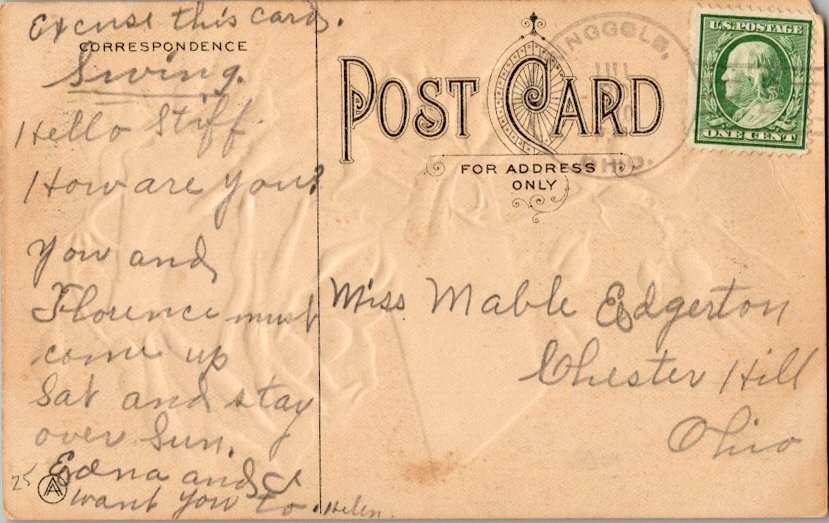 Excuse this card.
CORRESPONDENCE
Hello Stiff
How are you?
You and
Florence must
come up
Sat and stay
over Sun.
Edna and I
want you to. Helen.
25
POST CARD
FOR ADDRESS
ONLY
NGGOLD,
OHIO.
U.S. POSTAGE
ONE CENT
Miss Mable Edgerton
Chester Hill
Ohio